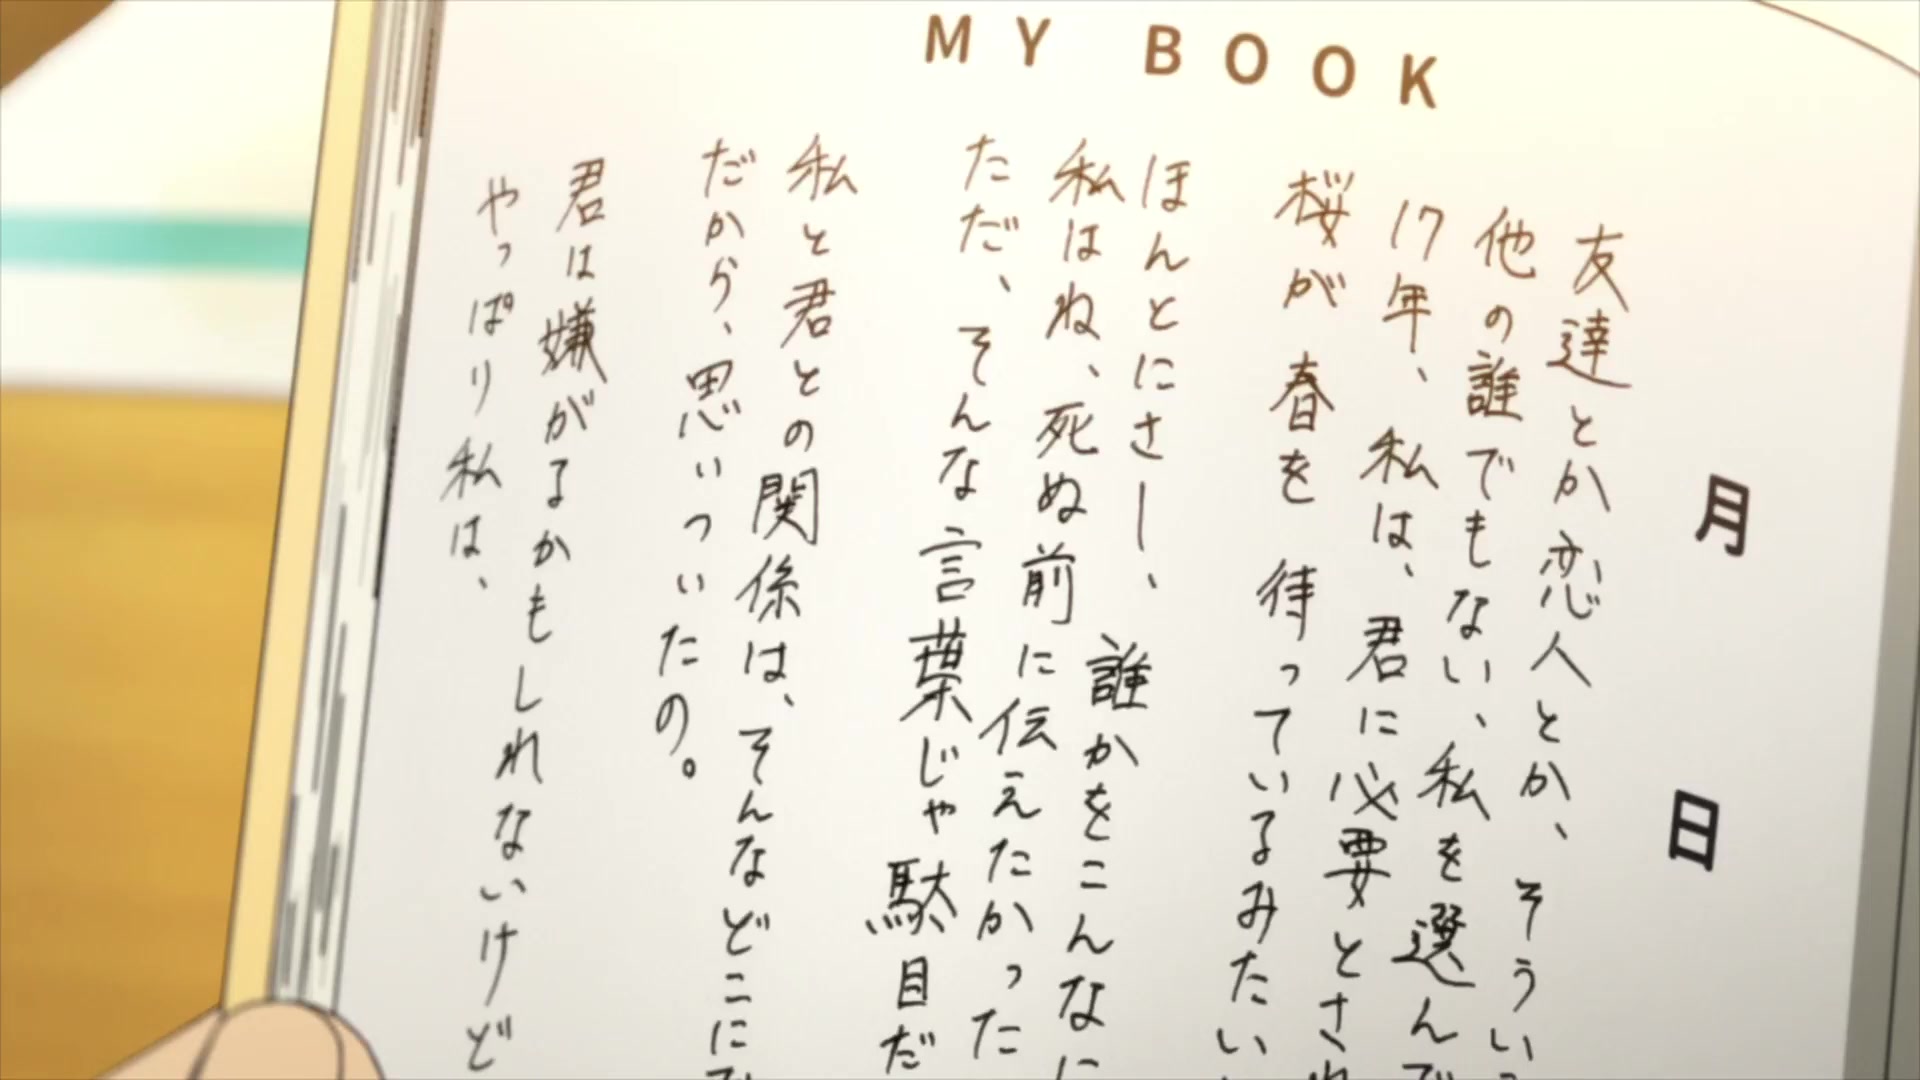 MY BOOK
月 日
友達とか恋人とか、そうい
他の誰でもない、私を選んで
17年、私は、君に必要とされ
桜が 春を 待っているみたい
ほんとにさー、誰かをこんなに
私はね、死ぬ前に伝えたかった
ただ、そんな言葉じゃ駄目だ
私と君との関係は、そんなどこにで
だから、思いついたの。
君は嫌がるかもしれないけど
やっぱり私は、